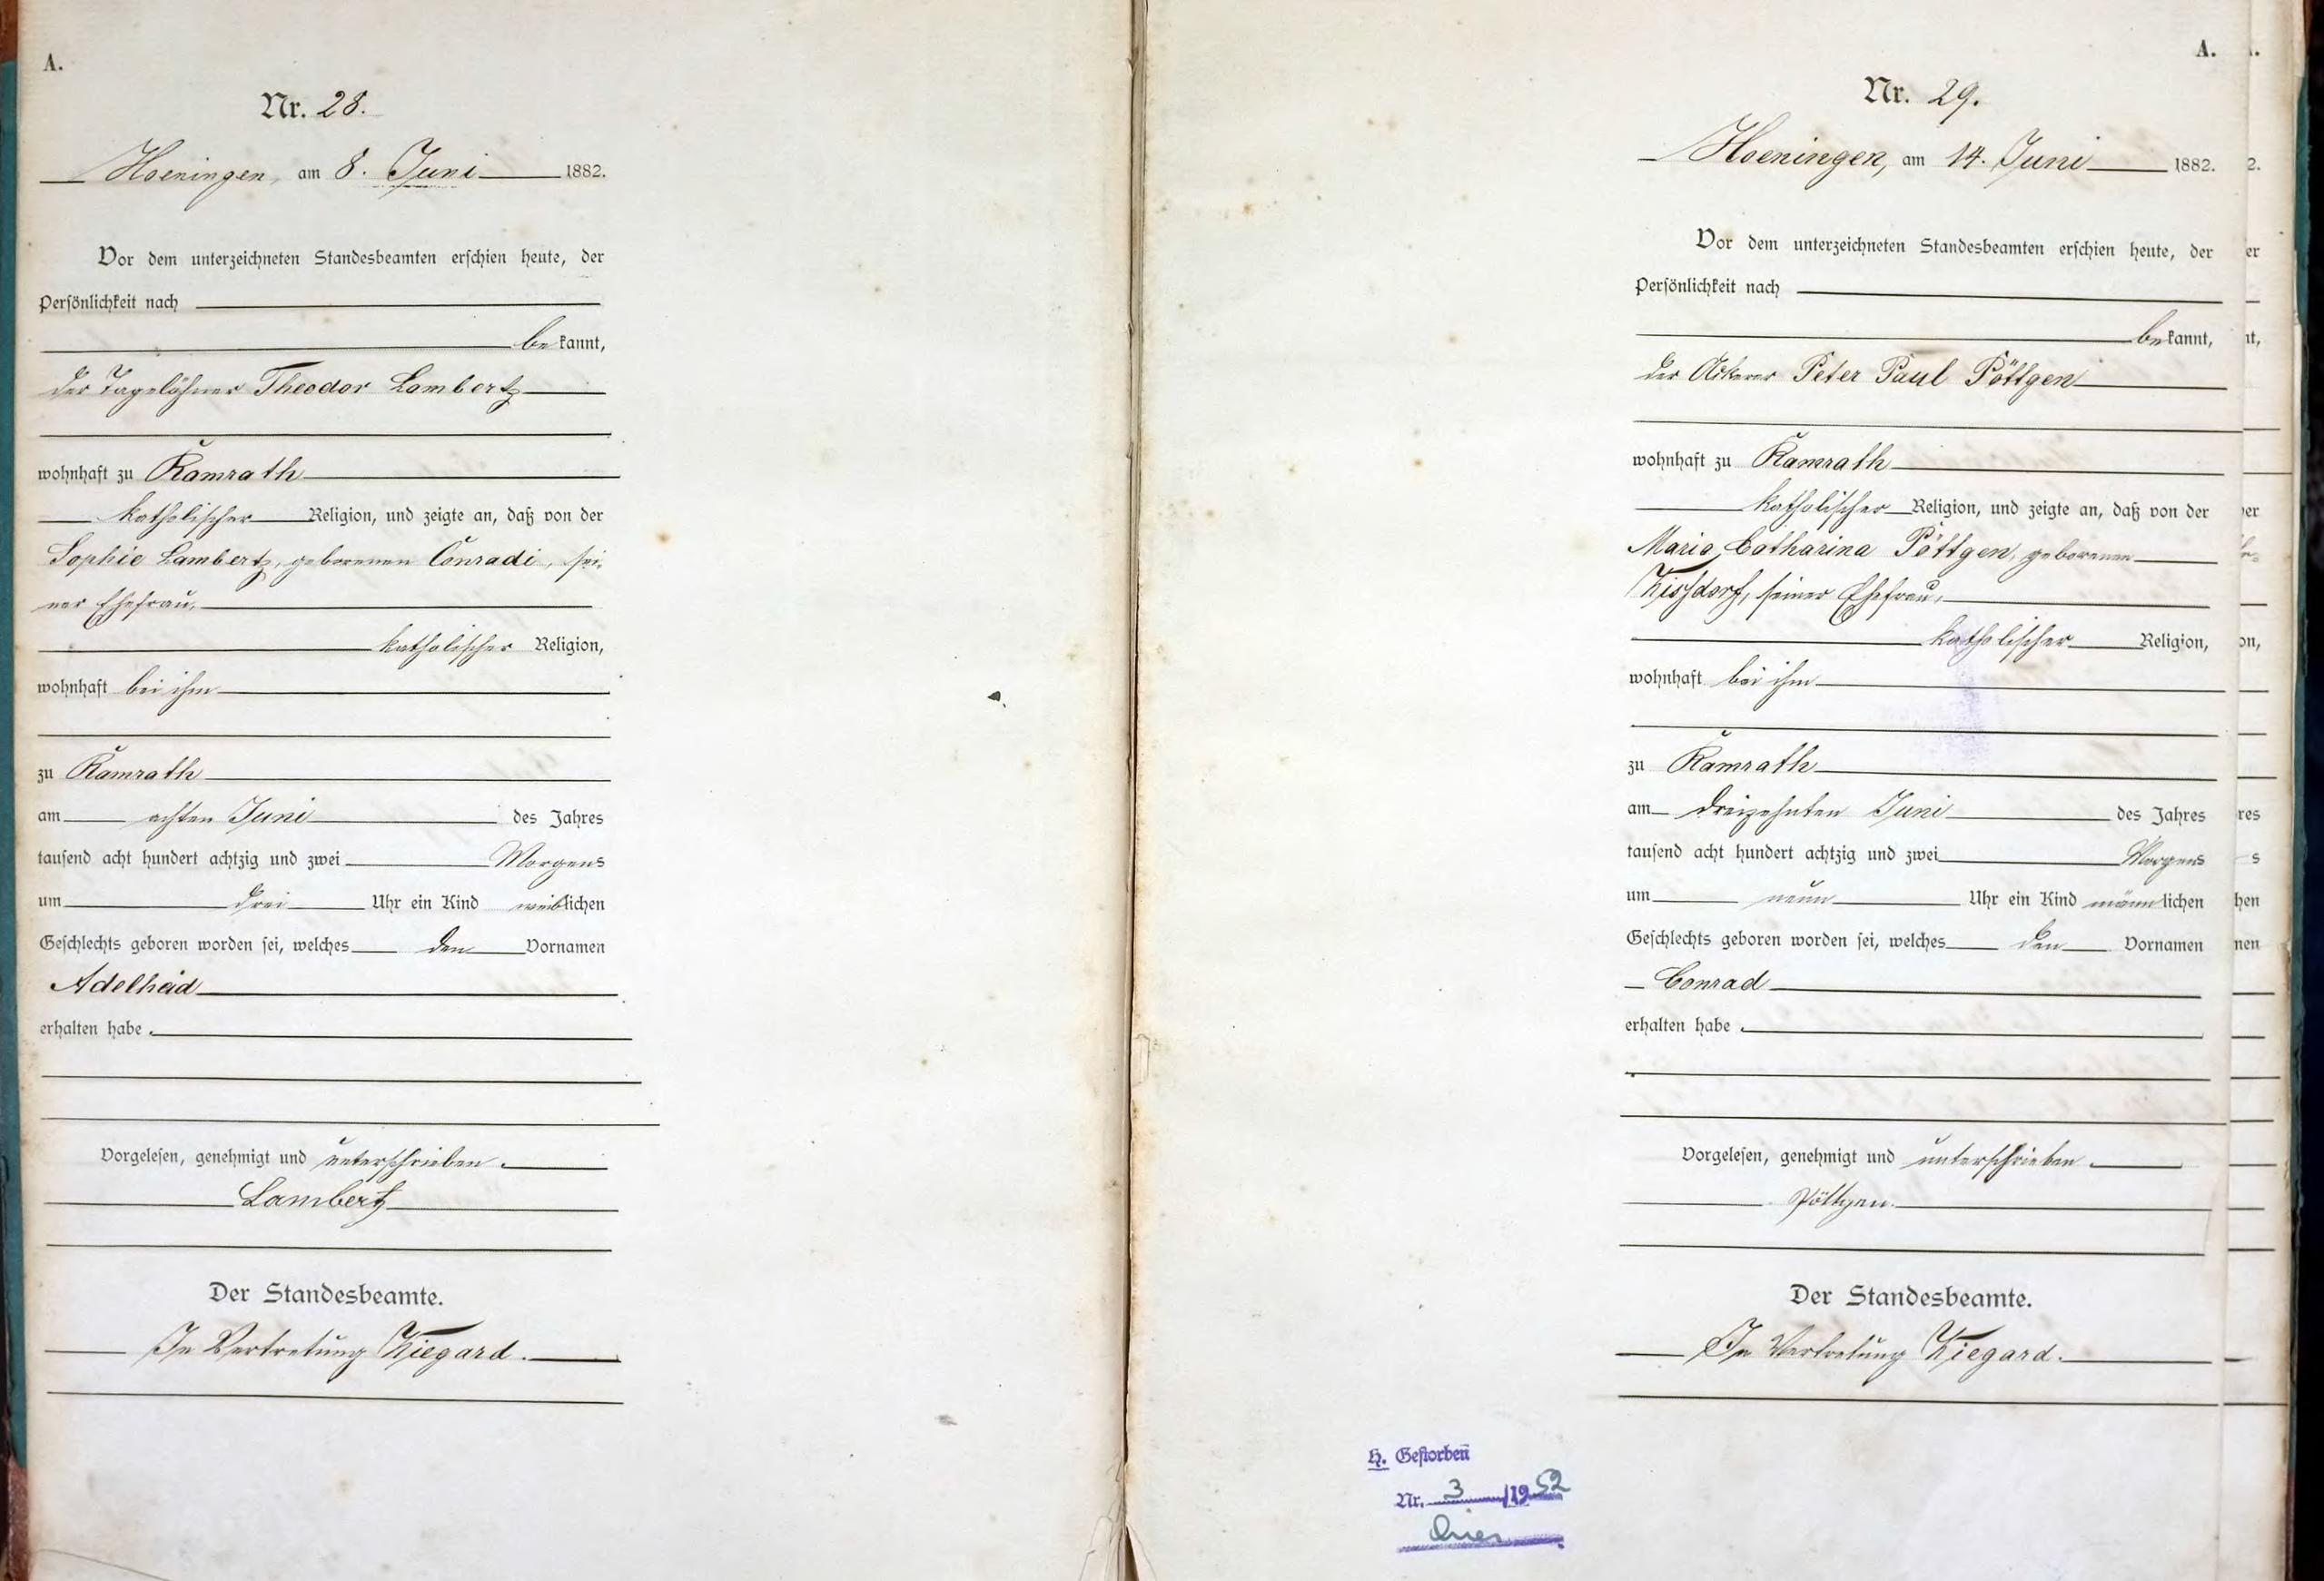 A.
Nr. 28.
Hoeningen, am 8. Juni 1882.
Vor dem unterzeichneten Standesbeamten erschien heute, der
Persönlichkeit nach
bekannt,
der Tagelöhner Theodor Lambertz
wohnhaft zu Ramrath
katholischer Religion, und zeigte an, daß von der
Sophie Lambertz, geborenen Conradi, sei-
ner Ehefrau,
katholischer Religion,
wohnhaft bei ihm
zu Ramrath
am achten Juni des Jahres
tausend acht hundert achtzig und zwei Morgens
um drei Uhr ein Kind weiblichen
Geschlechts geboren worden sei, welches den Vornamen
Adelheid
erhalten habe.
Vorgelesen, genehmigt und unterschrieben.
Lambertz
Der Standesbeamte.
In Vertretung Kiegard.
A.
Nr. 29.
Hoeningen, am 14. Juni 1882.
Vor dem unterzeichneten Standesbeamten erschien heute, der
Persönlichkeit nach
bekannt,
der Ackerer Peter Paul Pöttgen
wohnhaft zu Ramrath
katholischer Religion, und zeigte an, daß von der
Maria Catharina Pöttgen, geborenen
Kissdorf, seiner Ehefrau,
katholischer Religion,
wohnhaft bei ihm
zu Ramrath
am dreizehnten Juni des Jahres
tausend acht hundert achtzig und zwei Morgens
um neun Uhr ein Kind männlichen
Geschlechts geboren worden sei, welches den Vornamen
Conrad
erhalten habe.
Vorgelesen, genehmigt und unterschrieben.
Pöttgen.
Der Standesbeamte.
In Vertretung Kiegard.
H. Gestorben
Nr. 3 /1952